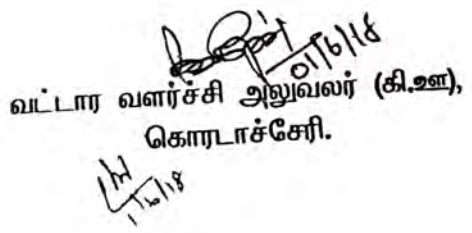 01/6/18
வட்டார வளர்ச்சி அலுவலர் (கி.ஊ),
கொரடாச்சேரி.
1/6/18